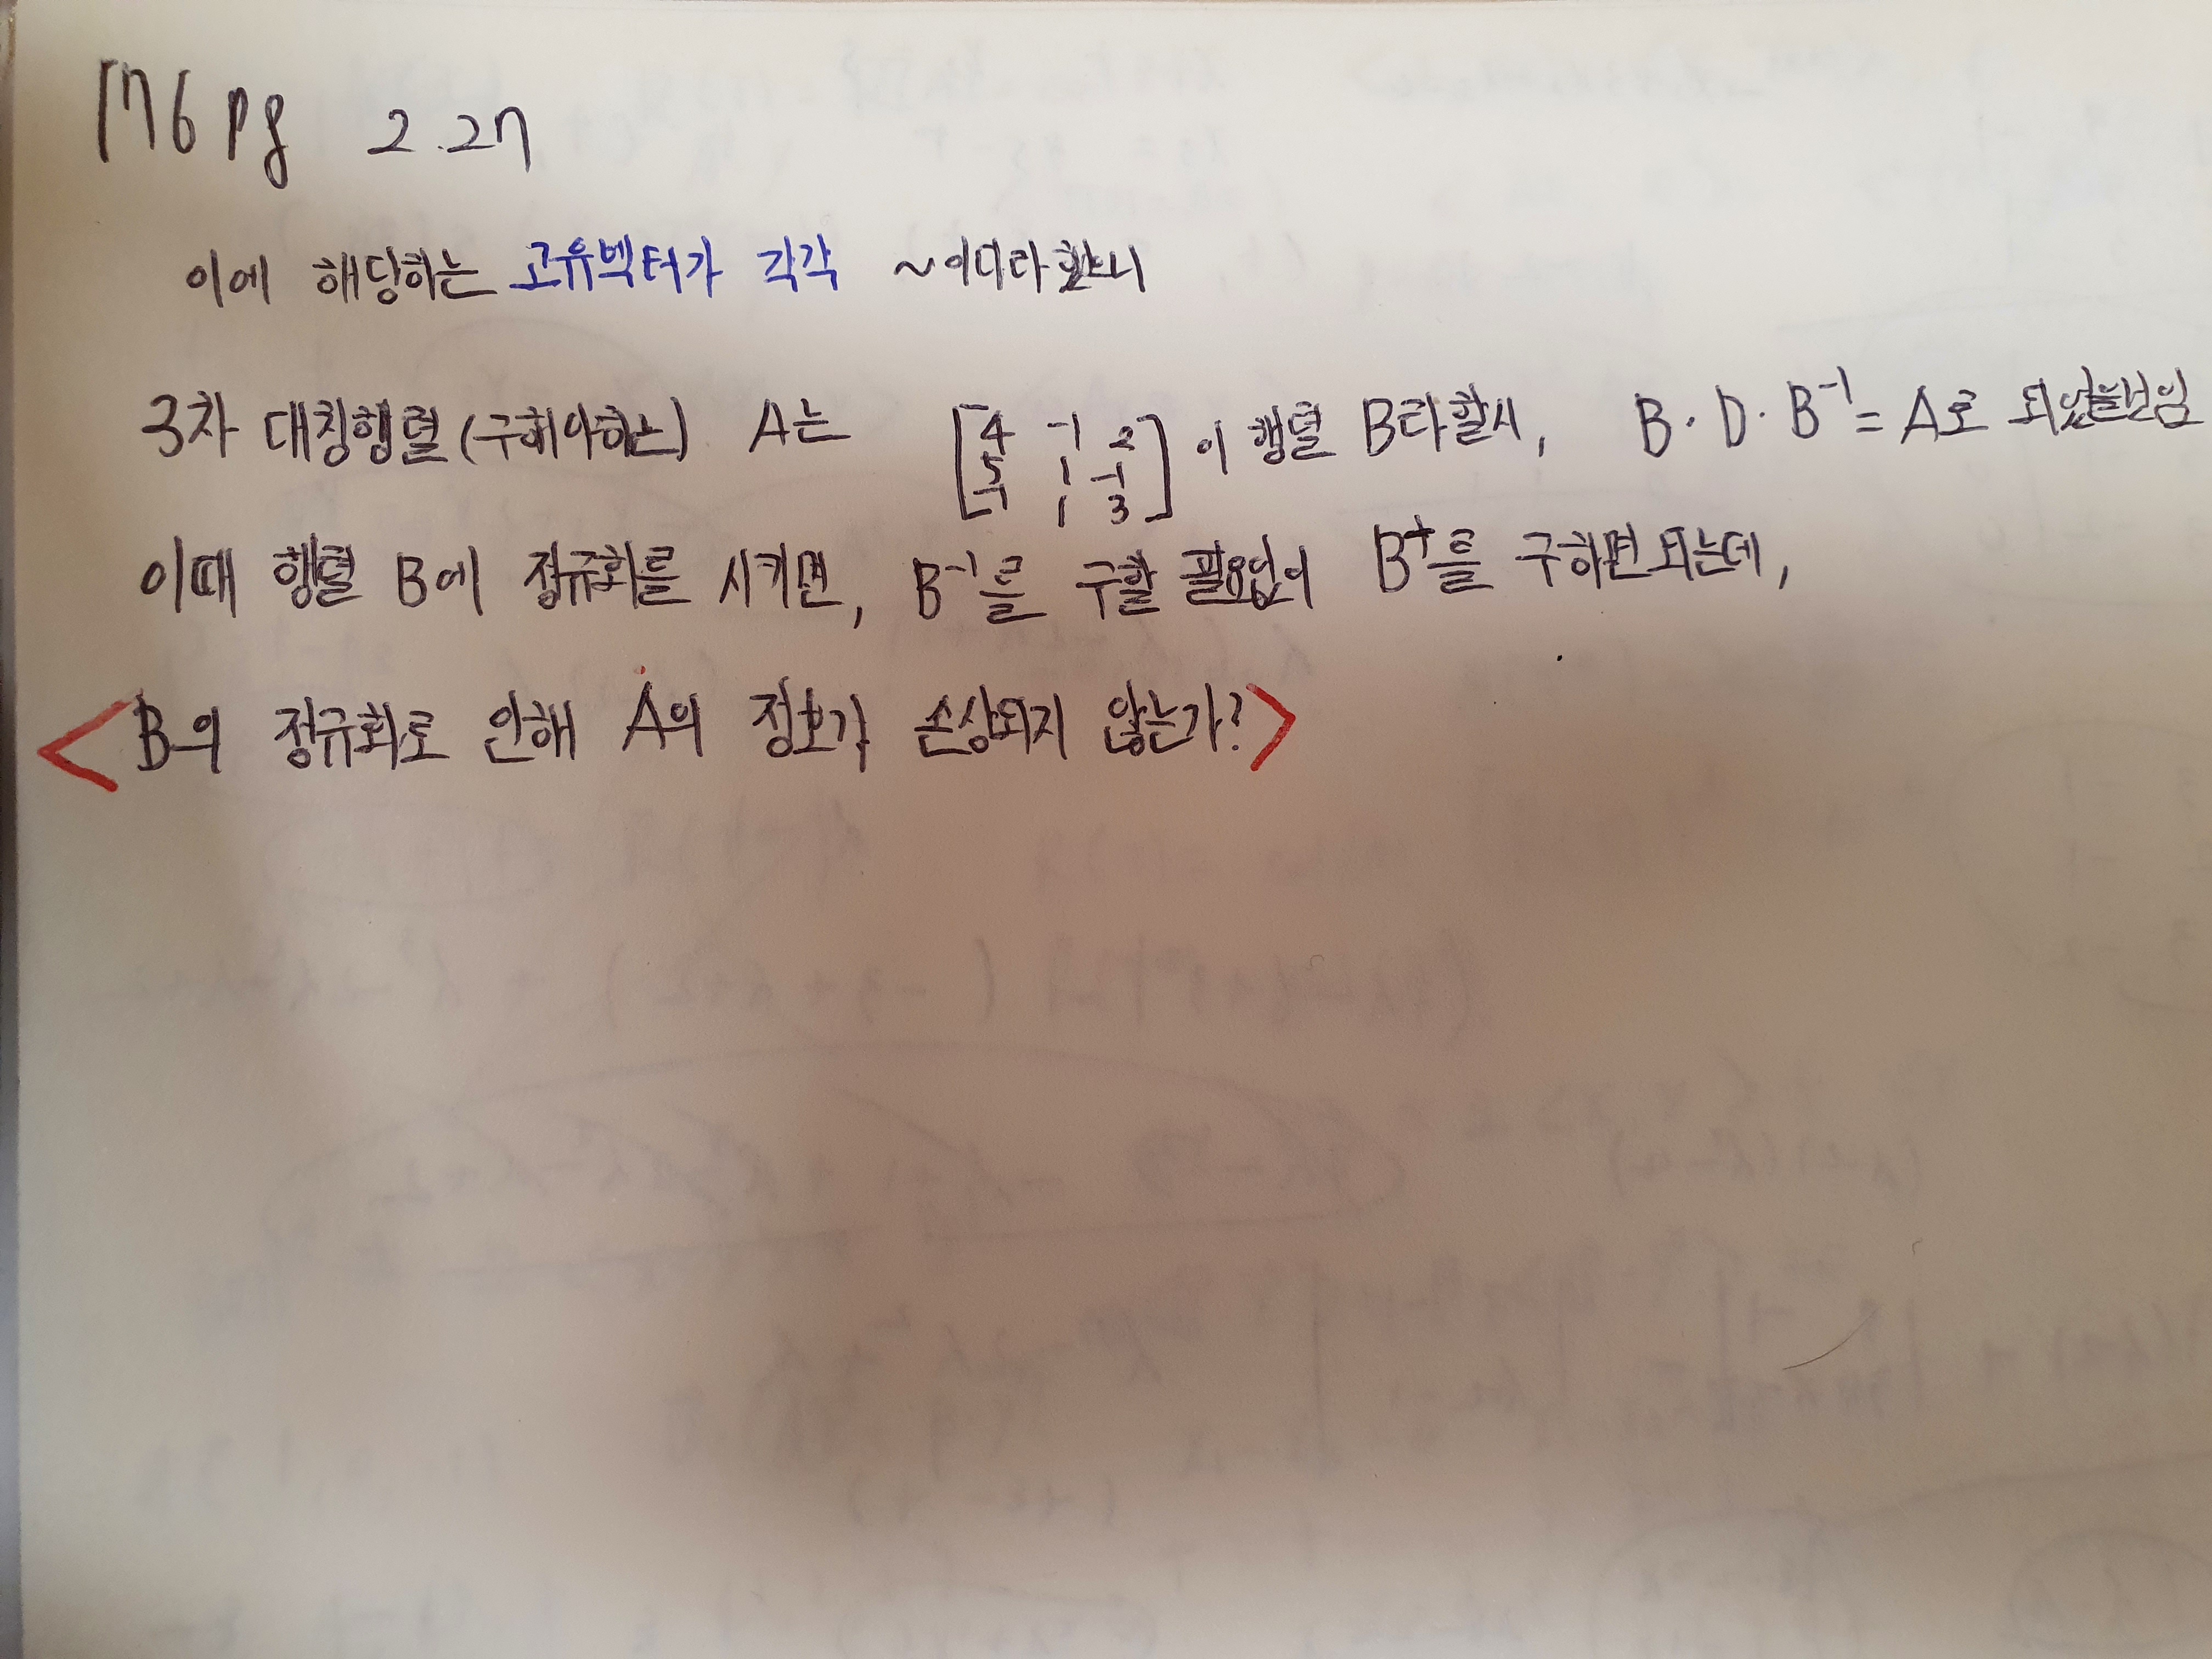 176 pg 2.27
이에 해당하는 고유벡터가 각각 ~이더라 했으니
3차 대칭행렬(구해야하는) A는 [4 -1 2 이 행렬 B라 할시, B·D·B⁻¹ = A로 되었을 것임
5 1 -1
-1 1 3]
이때 행렬 B에 정규화를 시키면, B⁻¹를 구할 필요없이 Bᵗ를 구하면 되는데,
<B의 정규화로 인해 A의 정보가 손상되지 않는가?>